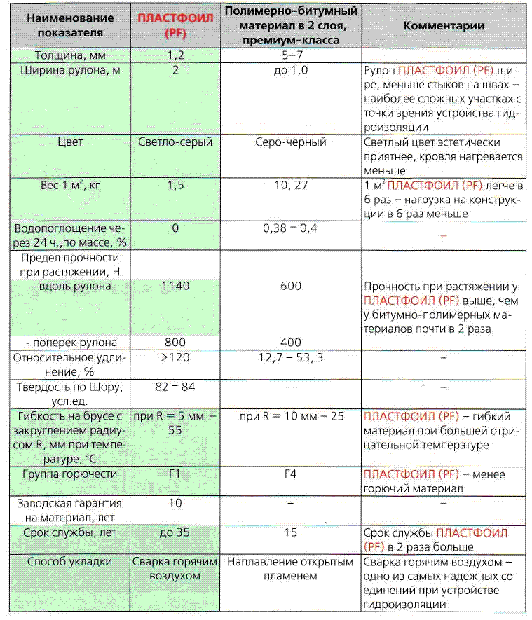 Наименование показателя
ПЛАСТФОИЛ (PF)
Полимерно-битумный материал в 2 слоя, премиум-класса
Комментарии
Толщина, мм
1,2
5–7
Ширина рулона, м
2
до 1,0
Рулон ПЛАСТФОИЛ (PF) ши-
ре, меньше стыков на швах –
наиболее сложных участках с
точки зрения устройства гид-
роизоляции
Цвет
Светло-серый
Серо-черный
Светлый цвет эстетически
приятнее, кровля нагревается
меньше
Вес 1 м², кг
1,5
10, 27
1 м² ПЛАСТФОИЛ (PF) легче в
6 раз – нагрузка на конструк-
ции в 6 раз меньше
Водопоглощение че-
рез 24 ч., по массе, %
0
0,38 – 0,4
–
Предел прочности
при растяжении, Н
- вдоль рулона
1140
600
Прочность при растяжении у
ПЛАСТФОИЛ (PF) выше, чем
у битумно-полимерных ма-
териалов почти в 2 раза
- поперек рулона
800
400
Относительное удли-
нение, %
>120
12,7 – 53, 3
–
Твердость по Шору,
усл.ед.
82 – 84
–
–
Гибкость на брусе с
закруглением радиу-
сом R, мм при темпе-
ратуре, °С
при R = 5 мм –
55
при R = 10 мм – 25
ПЛАСТФОИЛ (PF) – гибкий
материал при большей отри-
цательной температуре
Группа горючести
Г1
Г4
ПЛАСТФОИЛ (PF) – менее
горючий материал
Заводская гарантия
на материал, лет
10
–
–
Срок службы, лет
до 35
15
Срок службы ПЛАСТФОИЛ
(PF) в 2 раза больше
Способ укладки
Сварка горячим
воздухом
Наплавление открытым
пламенем
Сварка горячим воздухом –
одно из самых надежных со
единений при устройстве
гидроизоляции